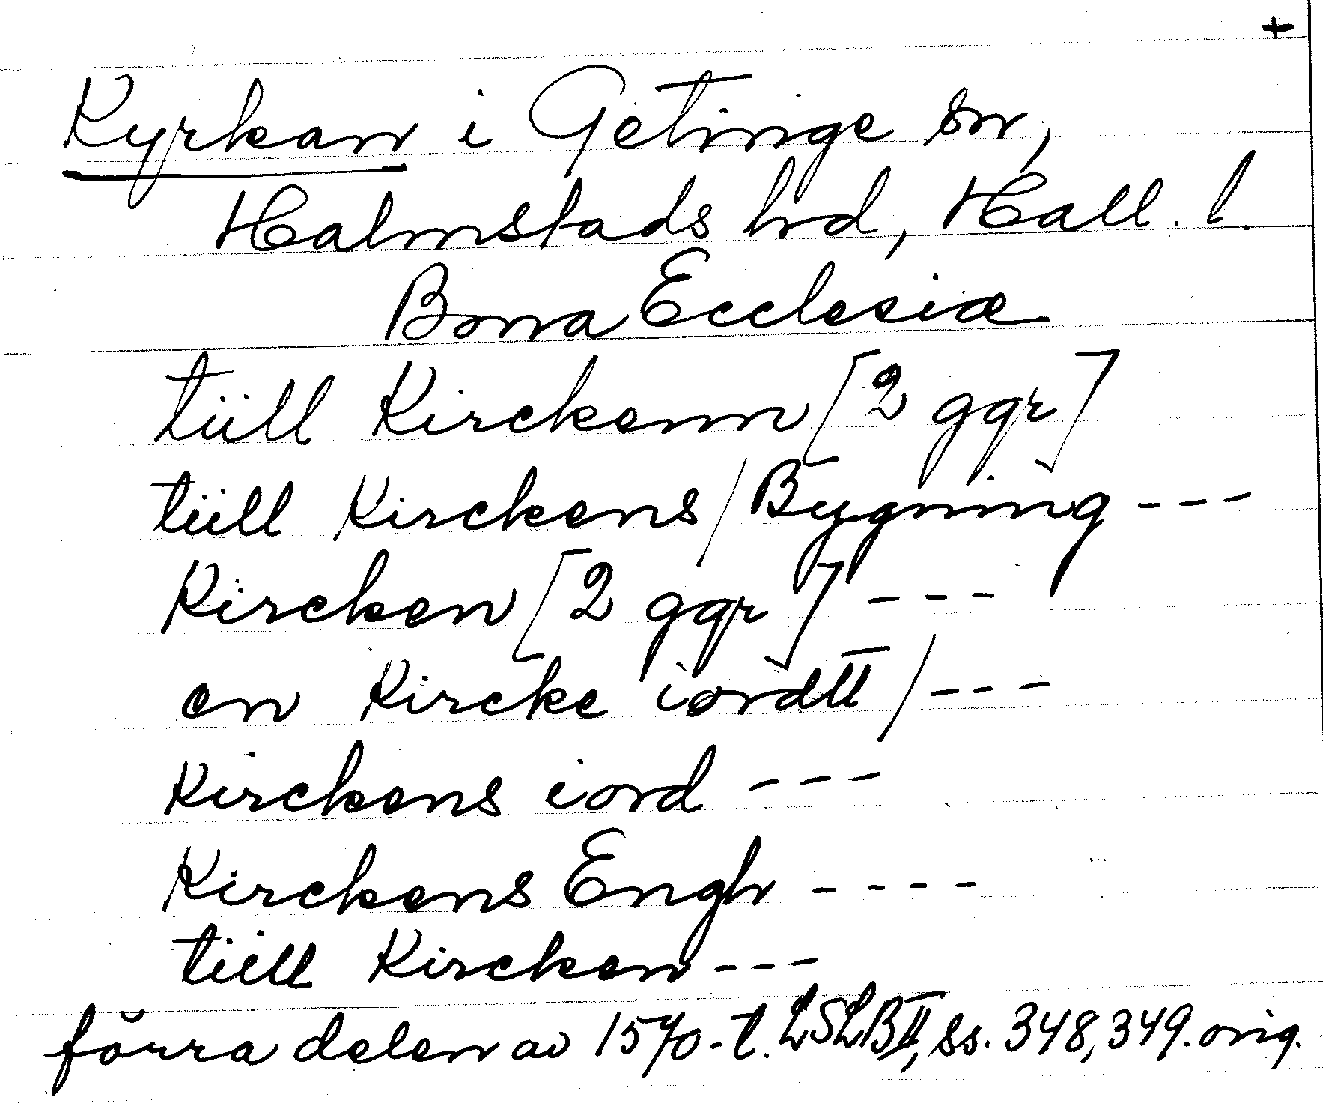 +
Kyrkan i Getinge sn,
Halmstads hrd, Hall. l.
Bona Ecclesiæ
tüll Kirckenn [2 ggr]
tüll Kirckens / Bÿgning ---
Kircken [2 ggr] ---
en Kircke iordtt / ---
Kirckens iord ---
Kirckens Engh ----
tiill Kircken ---
förra delen av 1570-t. LSLB II, ss. 348, 349. orig.